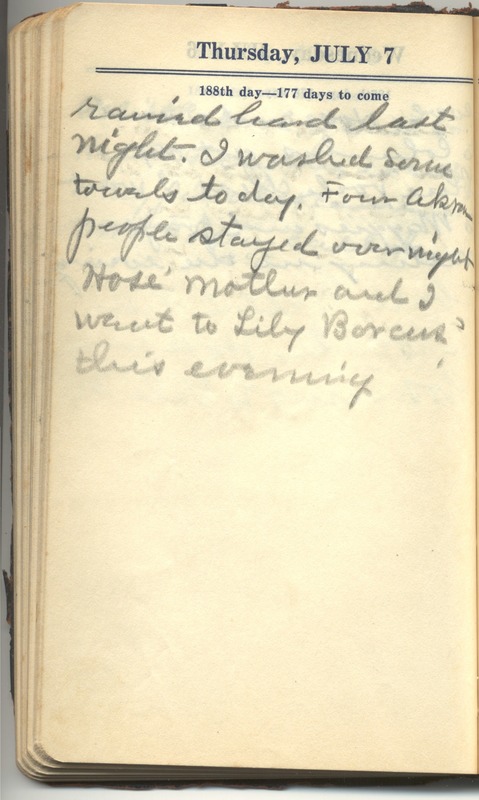 Thursday, JULY 7
188th day—177 days to come
rained hard last
night. I washed some
towels today. Four Akron
people stayed over night
Hose' mother and I
went to Lily
this evening